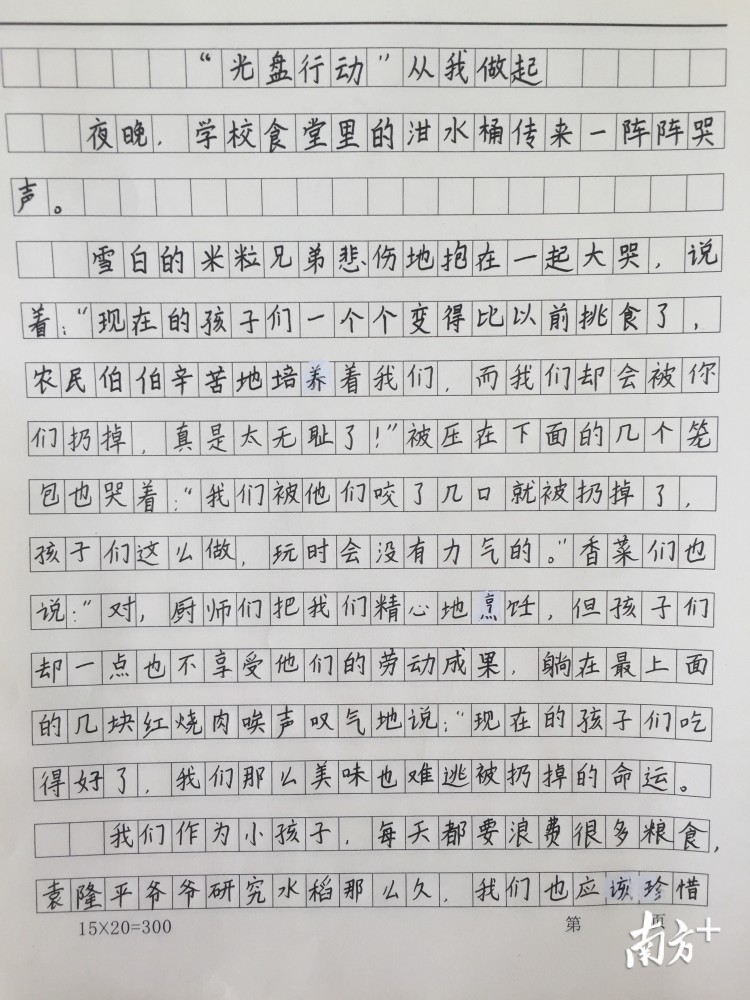 “光盘行动”从我做起
夜晚，学校食堂里的泔水桶传来一阵阵哭
声。
雪白的米粒兄弟悲伤地抱在一起大哭，说
着：“现在的孩子们一个个变得比以前挑食了，
农民伯伯辛苦地培养着我们，而我们却会被你
们扔掉，真是太无耻了！”被压在下面的几个笼
包也哭着：“我们被他们咬了几口就被扔掉了，
孩子们这么做，玩时会没有力气的。”香菜们也
说：“对，厨师们把我们精心地烹饪，但孩子们
却一点也不享受他们的劳动成果，躺在最上面
的几块红烧肉唉声叹气地说：“现在的孩子们吃
得好了，我们那么美味也难逃被扔掉的命运。
我们作为小孩子，每天都要浪费很多粮食，
袁隆平爷爷研究水稻那么久，我们也应该珍惜
15×20=300 第 页
南方+